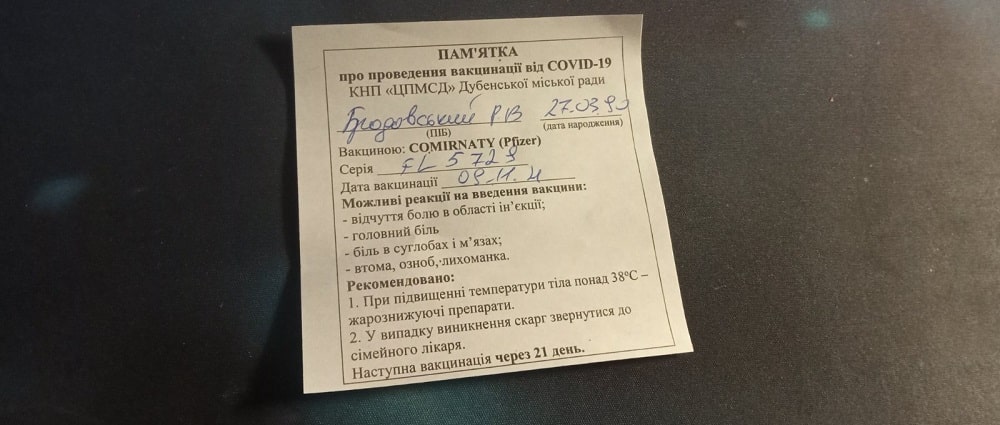 ПАМ'ЯТКА
про проведення вакцинації від COVID-19
КНП «ЦПМСД» Дубенської міської ради
Бродовський РВ 27.03.90
(ПІБ) (дата народження)
Вакциною: COMIRNATY (Pfizer)
Серія FL 5723
Дата вакцинації 09.11.21
Можливі реакції на введення вакцини:
- відчуття болю в області ін’єкції;
- головний біль
- біль в суглобах і м’язах;
- втома, озноб, лихоманка.
Рекомендовано:
1. При підвищенні температури тіла понад 38°С –
жарознижуючі препарати.
2. У випадку виникнення скарг звернутися до
сімейного лікаря.
Наступна вакцинація через 21 день.